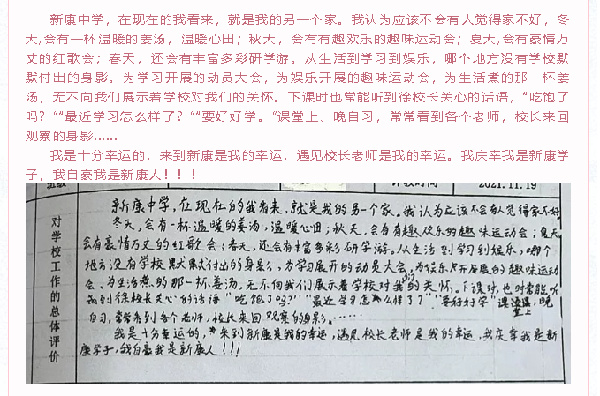 新康中学，在现在的我看来，就是我的另一个家。我认为应该不会有人觉得家不好，冬
天，会有一杯温暖的姜汤，温暖心田；秋天，会有有趣欢乐的趣味运动会；夏天，会有豪情万
丈的红歌会；春天，还会有丰富多彩研学游，从生活到学习到娱乐，哪个地方没有学校默
默付出的身影，为学习开展的动员大会，为娱乐开展的趣味运动会，为生活煮的那一杯姜
汤，无不向我们展示着学校对我们的关怀。下课时也常能听到徐校长关心的话语，“吃饱了
吗？”“最近学习怎么样了？”“要好好学。”课堂上、晚自习，常常看到各个老师，校长来回
观察的身影……
我是十分幸运的，来到新康是我的幸运，遇见校长老师是我的幸运。我庆幸我是新康学
子，我自豪我是新康人！！！
2021.11.19
对学校工作的总体评价
新康中学，在现在的我看来，就是我的另一个家。我认为应该不会有人觉得家不好
冬天，会有一杯温暖的姜汤，温暖心田；秋天，会有有趣欢乐的趣味运动会；夏天
会有豪情万丈的红歌会；春天，还会有丰富多彩研学游，从生活到学习到娱乐，哪个
地方没有学校默默付出的身影，为学习开展的动员大会，为娱乐开展的趣味运动
会，为生活煮的那一杯姜汤，无不向我们展示着学校对我们的关怀。下课时，也时常能听
到徐校长关心的话语“吃饱了吗？”“最近学习怎么样了？”“要好好学”课堂上，晚
自习，常常看到各个老师，校长来回观察的身影……
我是十分幸运的，来到新康是我的幸运，遇见校长老师是我的幸运，我庆幸我是新
康学子，我自豪我是新康人！！！